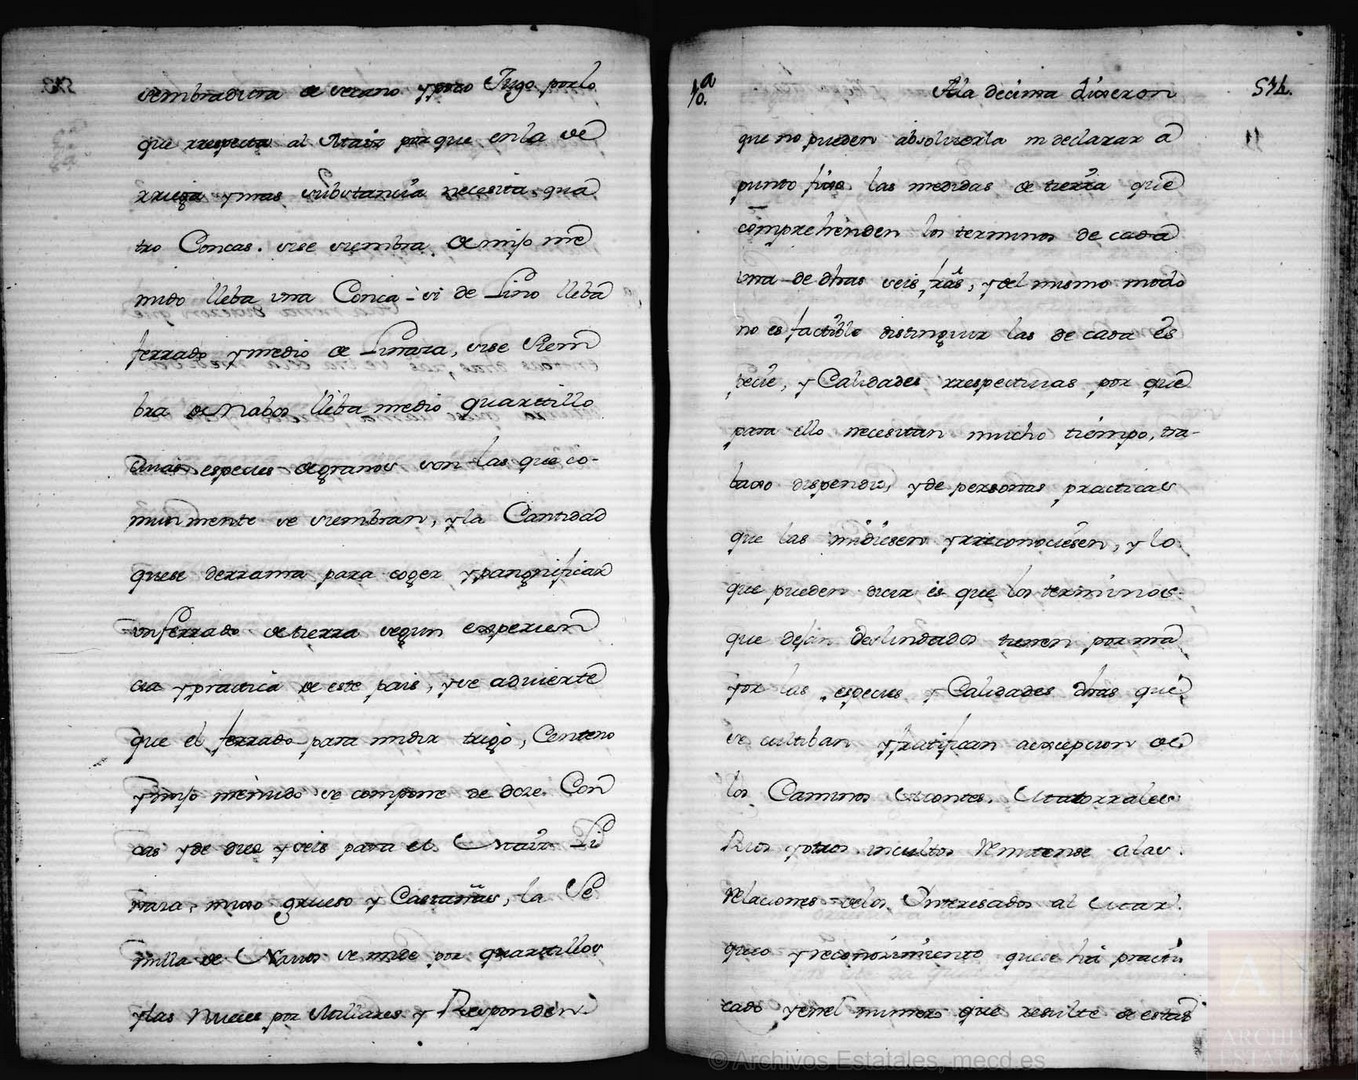 543.
sembradura de verano y por Trigo por lo
que respecta al Maiz porque en la se
rriega y mas substancia necesita qua
tro Concas. si se siembra de mijo me
nudo lleba una Conca si de Lino lleba
ferrado y medio de Linaza, si se siem
bra de Nabos lleba medio quartillo
cuias especies de granos son las que co-
munmente se siembran, y la Cantidad
que se derrama para coger y panificar
un ferrado de tierra segun experien
cia y practica de este pais, y se advierte
que el ferrado para midir trigo, Centeno
y mijo menudo se compone de doze Con
cas y de diez y seis para el Maiz Li
naza, mijo grueso y Castañas, la Se
milla de Navos se mide por quartillos
y las Nueces por Milliares y Responden
10.ª
A la decima dixeron
544.
que no pueden absolverla ni declarar a
punto fixo las medidas de tierra que
comprehenden los terminos de cada
una de dhas seis frãs, y del mismo modo
no es factible distinguir las de cada es
pecie, y Calidades rrespectivas por que
para ello necesitan mucho tiempo, tra-
baxo dispendio, y de personas practicas
que las midiesen y rreconociesen, y lo
que pueden dicir es que los terminos
que dejan deslindados tienen por ma
yor las especies y Calidades dhas que
se cultiban y fratifican a excepcion de
los Caminos Montes, Matorrales
Rios y otros incultos Remitense a las
Relaciones de los Interesados al Mar
queo y reconocimiento que se há practi
cado y en el numero que resulte de estas
© Archivos Estatales, mecd.es